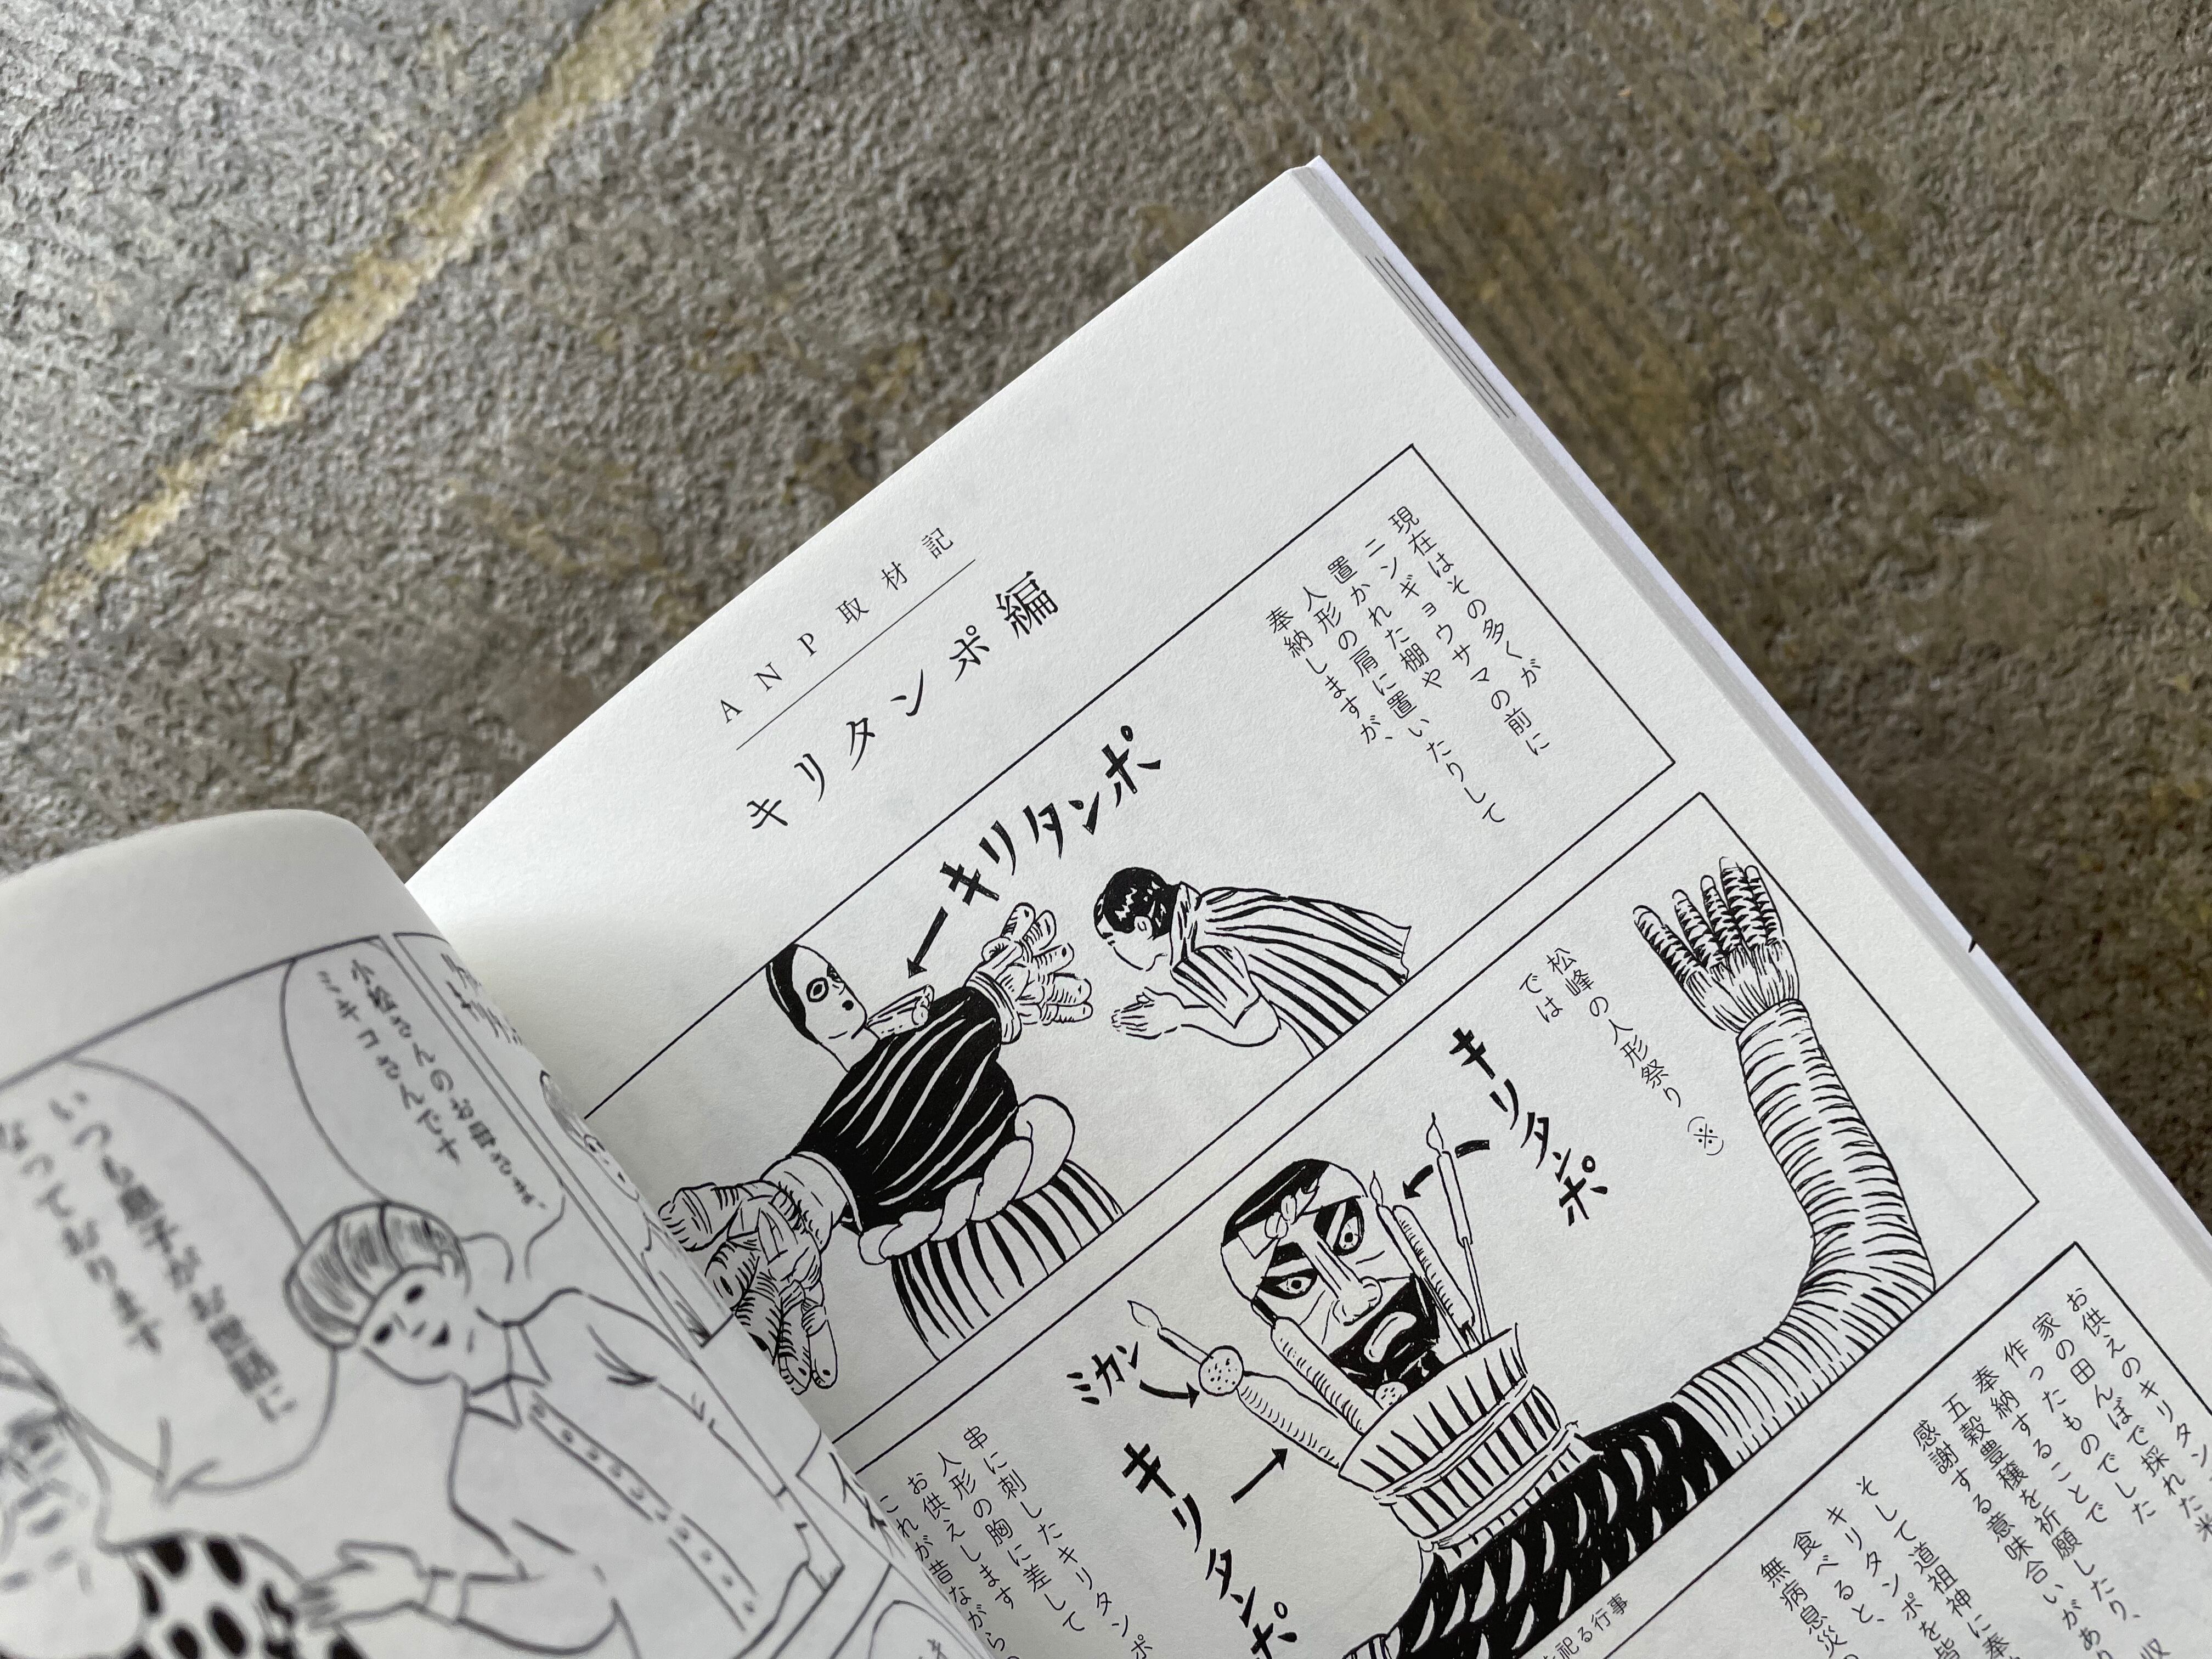 ANP取材記
キリタンポ編
現在はその多くが
ニンギョウサマの前に
置かれた棚や
人形の肩に置いたりして
奉納しますが、
キリタンポ
松峰の人形祭り(※)
では
キリタンポ
ミカン
キリタンポ
串に刺したキリタンポ
人形の胸に差して
お供えします
これが昔ながらの
お供えのキリタン
家の田んぼで採れた米
作ったものでした
奉納することで
五穀豊穣を祈願したり、収
感謝する意味合いがあり
そして道祖神に奉
キリタンポを皆
食べると、
無病息災の
祀る行事
小松さんのお母さま、
ミキコさんです
いつも息子がお世話に
なっております